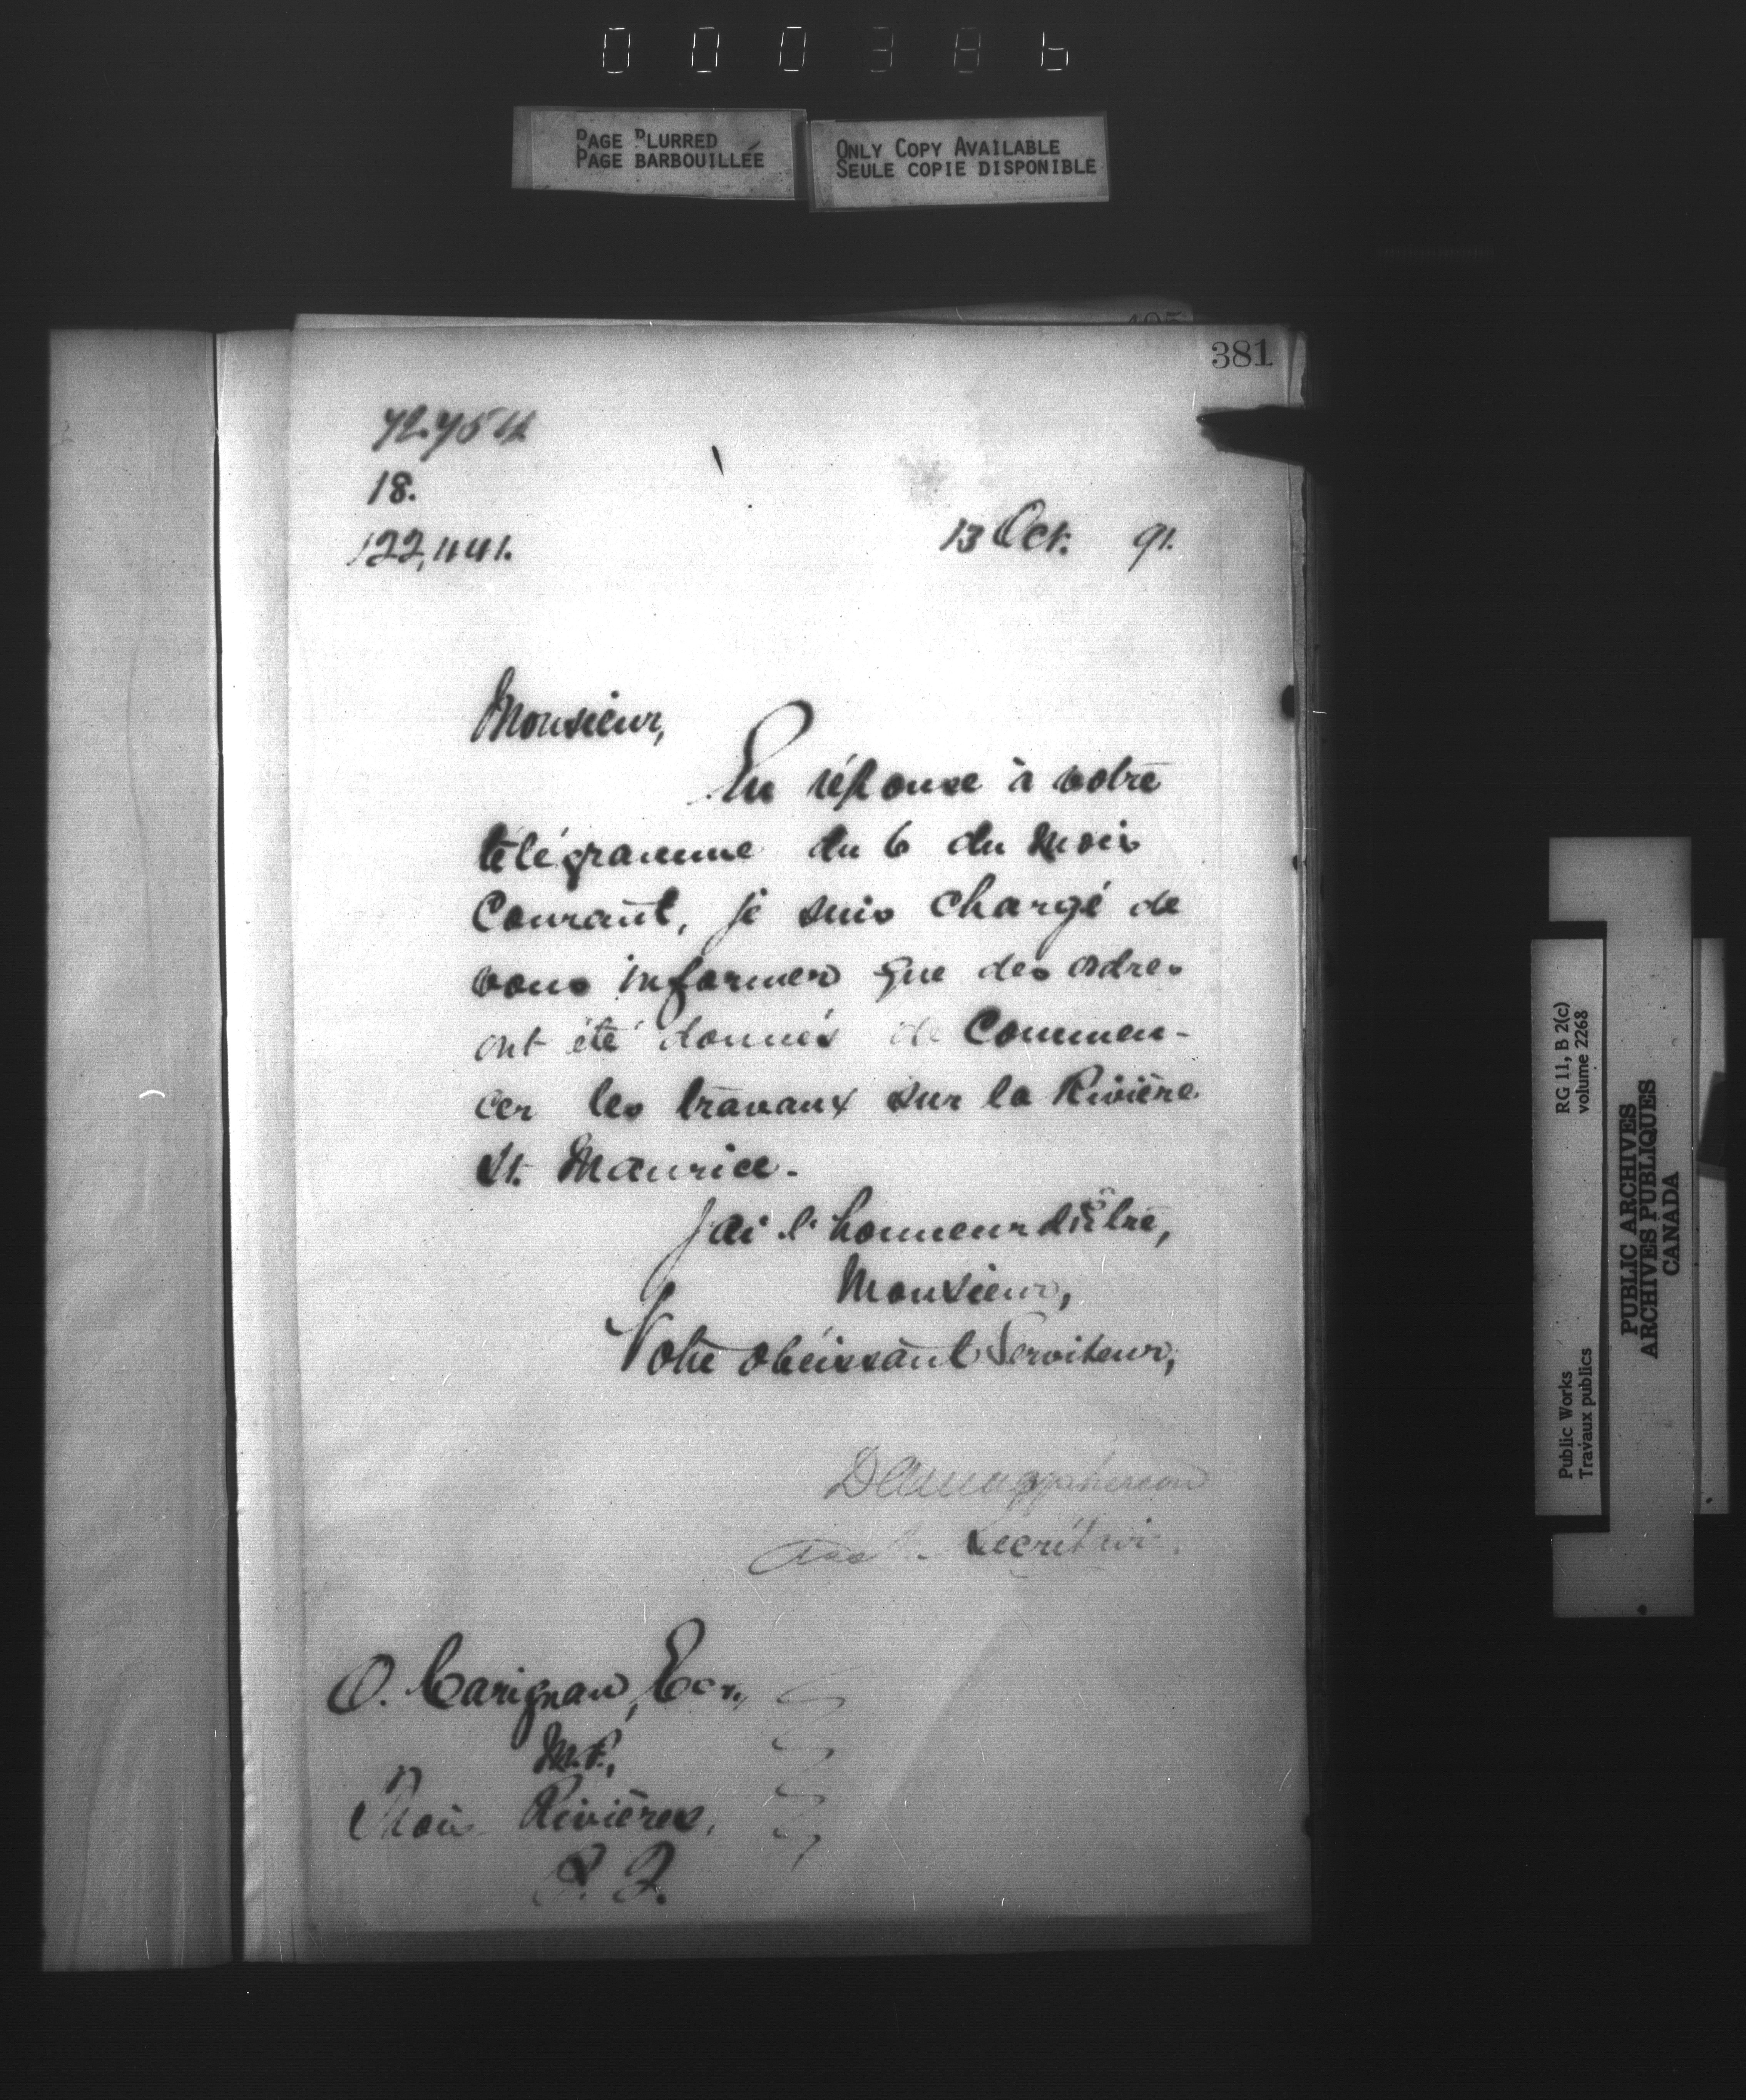 000386
PAGE BLURRED
PAGE BARBOUILLÉE
ONLY COPY AVAILABLE
SEULE COPIE DISPONIBLE
381
18.
13 Oct. 91.
Monsieur,
En réponse à votre
télégramme du 6 du mois
Courant, je suis chargé de
vous informer que des ordres
ont été donnés de Commen-
cer les travaux sur la Rivière
St. Maurice.
J'ai l'honneur d'être,
Monsieur,
Votre obéissant Serviteur,
Secrétaire.
O. Carignan, Ecr.,
M.P.,
Trois Rivières,
P. Q.
RG 11, B 2(c)
volume 2268
Public Works
Travaux publics
PUBLIC ARCHIVES
ARCHIVES PUBLIQUES
CANADA